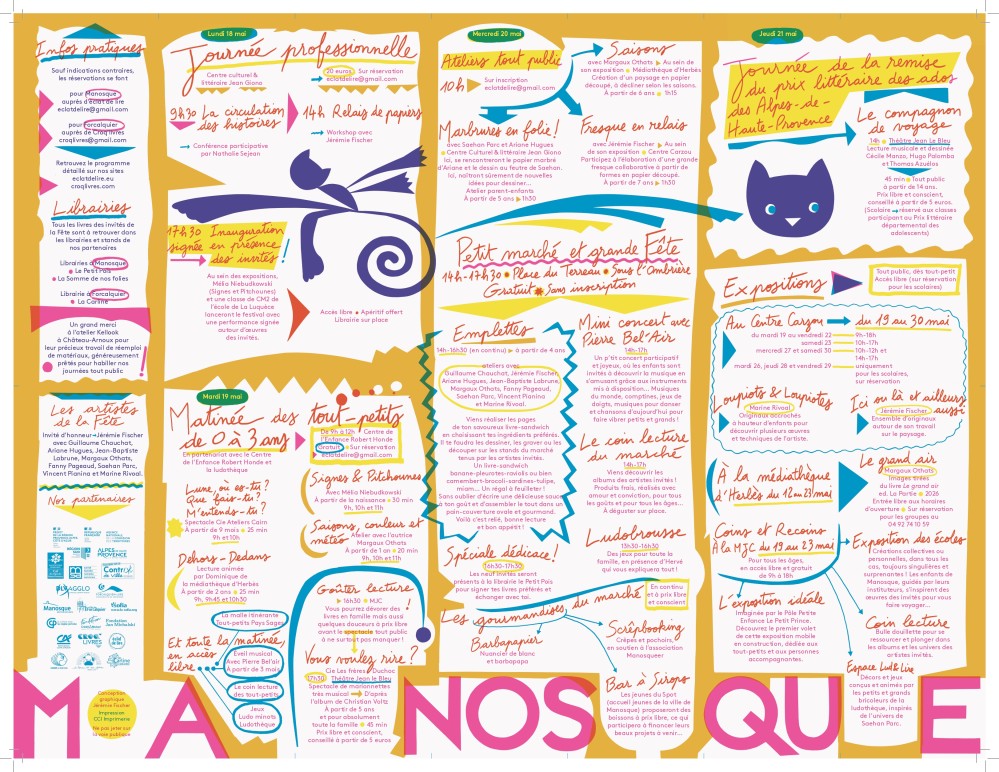 Infos pratiques
Sauf indications contraires,
les réservations se font
pour Manosque
auprès d'éclat de lire
eclatdelire@gmail.com
pour Forcalquier
auprès de Croq'livres
croqlivres@gmail.com
Retrouvez le programme
détaillé sur nos sites
eclatdelire.eu
croqlivres.com
Librairies
Tous les livres des invités de
la Fête sont à retrouver dans
les librairies et stands de
nos partenaires
Librairies à Manosque
Le Petit Pois
La Somme de nos folies
Librairie à Forcalquier
La Carline
Un grand merci
à l'atelier Kellook
à Château-Arnoux pour
leur précieux travail de réemploi
de matériaux, généreusement
prêtés pour habiller nos
journées tout public
Les artistes
de la Fête
Invité d'honneur → Jérémie Fischer
avec Guillaume Chauchat,
Ariane Hugues, Jean-Baptiste
Labrune, Margaux Othats,
Fanny Pageaud, Saehan Parc,
Vincent Pianina et Marine Rivoal.
Nos partenaires
ALPES
PROVENCE
Contrat
de ville
AGGLO
Manosque
CROC
LIVRES
Conception
graphique
Jérémie Fischer
Impression
CCI Imprimerie
Ne pas jeter sur
la voie publique
Lundi 18 mai
Journée professionnelle
Centre culturel &
littéraire Jean Giono
20 euros Sur réservation
→ eclatdelire@gmail.com
9h30 La circulation
des histoires
→ Conférence participative
par Nathalie Sejean
14h Relais de papiers
→ Workshop avec
Jérémie Fischer
17h30 Inauguration
signée en présence
des invités !
Au sein des expositions,
Mélia Niebudkowski
(Signes et Pitchounes)
et une classe de CM2 de
l'école de La Luquèce
lanceront le festival avec
une performance signée
autour d'œuvres
des invités.
Accès libre • Apéritif offert
Librairie sur place
Mardi 19 mai
Matinée des tout-petits
de 0 à 3 ans
De 9h à 12h Centre de
l'Enfance Robert Honde
Gratuit → Sur réservation
eclatdelire@gmail.com
En partenariat avec le Centre
de l'Enfance Robert Honde et
la ludothèque
Lune, où es-tu?
Que fais-tu?
M'entends-tu?
Spectacle Cie Ateliers Cairn
À partir de 9 mois • 25 min
9h et 10h
Dehors-Dedans
Lecture animée
par Dominique de
la médiathèque d'Herbès
À partir de 2 ans • 25 min
9h, 9h45 et 10h30
Signes & Pitchounes
Avec Mélia Niebudkowski
À partir de la naissance • 30 min
9h, 10h et 11h
Saisons, couleur et
météo
Atelier avec l'autrice
Margaux Othats
À partir de 1 an • 20 min
9h, 10h et 11h
Et toute la matinée,
en accès
libre
La malle itinérante
Tout-petits Pays Sages
Éveil musical
Avec Pierre Bel'air
À partir de 3 mois
Le coin lecture
des tout-petits
Jeux
Ludo minots
Ludothèque
Goûter lecture !
16h30 • MJC
Vous pourrez dévorer des
livres en famille mais aussi
quelques douceurs à prix libre
avant le spectacle tout public
à ne surtout pas manquer !
Vous voulez rire ?
17h30 Cie Les frères Duchoc
Théâtre Jean le Bleu
Spectacle de marionnettes
très musical → D'après
l'album de Christian Voltz
À partir de 5 ans
et pour absolument
toute la famille • 45 min
Prix libre et conscient,
conseillé à partir de 5 euros
Mercredi 20 mai
Ateliers tout public
10h Sur inscription
eclatdelire@gmail.com
Saisons
avec Margaux Othats ▶ Au sein de
son exposition • Médiathèque d'Herbès
Création d'un paysage en papier
découpé, à décliner selon les saisons.
À partir de 6 ans • 1h15
Marbrures en folie !
avec Saehan Parc et Ariane Hugues
Centre Culturel & littéraire Jean Giono
Ici, se rencontreront le papier marbré
d'Ariane et le dessin au feutre de Saehan.
Ici, naîtront sûrement de nouvelles
idées pour dessiner...
Atelier parent-enfants
À partir de 5 ans ▶ 1h30
Fresque en relais
avec Jérémie Fischer ▶ Au sein de
son exposition • Centre Carzou
Participez à l'élaboration d'une grande
fresque collaborative à partir de
formes en papier découpé.
À partir de 7 ans ▶ 1h30
Petit marché et grande Fête
14h-17h30 • Place du Terreau • Sous l'Ombrière
Gratuit Sans inscription
Emplettes
14h-16h30 (en continu) ▶ à partir de 4 ans
ateliers avec
Guillaume Chauchat, Jérémie Fischer,
Ariane Hugues, Jean-Baptiste Labrune,
Margaux Othats, Fanny Pageaud,
Saehan Parc, Vincent Pianina
et Marine Rivoal.
Viens réaliser les pages
de ton savoureux livre-sandwich
en choisissant tes ingrédients préférés.
Il te faudra les dessiner, les graver ou les
découper sur les stands du marché
tenus par les artistes invités.
Un livre-sandwich
banane-pleurotes-raviolis ou bien
camembert-brocoli-sardines-tulipe,
miam... Un régal à feuilleter !
Sans oublier d'écrire une délicieuse sauce
à ton goût et d'assembler le tout dans un
pain-couverture ovale et gourmand.
Voilà c'est relié, bonne lecture
et bon appétit !
Spéciale dédicace!
16h30-17h30
Les neuf invités seront
présents à la librairie le Petit Pois
pour signer tes livres préférés et
échanger avec toi.
Mini concert avec
Pierre Bel'Air
14h-17h
Un p'tit concert participatif
et joyeux, où les enfants sont
invités à découvrir la musique en
s'amusant grâce aux instruments
mis à disposition... Musiques
du monde, comptines, jeux de
doigts, musiques pour danser
et chansons d'aujourd'hui pour
faire vibrer petits et grands !
Le coin lecture
du marché
14h-17h
Viens découvrir les
albums des artistes invités !
Produits frais, réalisés avec
amour et conviction, pour tous
les goûts et pour tous les âges...
À déguster sur place.
Ludobrousse
13h30-16h30
Des jeux pour toute la
famille, en présence d'Hervé
qui vous expliquera tout !
Les gourmandises, du marché
En continu
et à prix libre
et conscient
Barbapapier
Nuancier de blanc
et barbapapa
Scrêpbooking
Crêpes et pochoirs,
en soutien à l'association
Manosqueer
Bar à Sirops
Les jeunes du Spot
(accueil jeunes de la ville de
Manosque) proposeront des
boissons à prix libre, ce qui
participera à financer leurs
beaux projets à venir...
Jeudi 21 mai
Journée de la remise
du prix littéraire des ados
des Alpes-de-
Haute-Provence
Le compagnon
de voyage
14h • Théâtre Jean Le Bleu
Lecture musicale et dessinée
Cécile Manzo, Hugo Palomba
et Thomas Azuélos
45 min • Tout public
à partir de 14 ans.
Prix libre et conscient,
conseillé à partir de 5 euros.
(Scolaire → réservé aux classes
participant au Prix littéraire
départemental des
adolescents)
Expositions
Tout public, dès tout-petit
Accès libre (sur réservation
pour les scolaires)
Au Centre Carzou → du 19 au 30 mai
mardi 19 au vendredi 22 9h-18h
samedi 23 10h-17h
mercredi 27 et samedi 30 10h-12h et
14h-17h
mardi 26, jeudi 28 et vendredi 29 uniquement
pour les scolaires,
sur réservation
Loupiots & Loupiotes
Marine Rivoal
Originaux accrochés
à hauteur d'enfants pour
découvrir plusieurs œuvres
et techniques de l'artiste.
Ici ou là et ailleurs
aussi
Jérémie Fischer
Ensemble d'originaux
autour de son travail
sur le paysage.
À la médiathèque
d'Herbès du 12 au 23 mai
Le grand air
Margaux Othats
Images tirées
du livre Le grand air
ed. La Partie • 2026
Entrée libre aux horaires
d'ouverture • Sur réservation
pour les groupes au
04 92 74 10 59
Coins et Recoins
À la MJC du 19 au 23 mai
Pour tous les âges,
en accès libre et gratuit
de 9h à 18h
Exposition des écoles
Créations collectives ou
personnelles, dans tous les
cas, toujours singulières et
surprenantes ! Les enfants de
Manosque, guidés par leurs
instituteurs, s'inspirent des
œuvres des invités pour vous
faire voyager...
L'exposition idéale
Imaginée par le Pôle Petite
Enfance Le Petit Prince.
Découvrez le premier volet
de cette exposition mobile
en construction, dédiée aux
tout-petits et aux personnes
accompagnantes.
Coin lecture
Bulle douillette pour se
ressourcer et plonger dans
les albums et les univers des
artistes invités.
Espace Ludi Lire
Décors et jeux
conçus et animés par
les petits et grands
bricoleurs de la
ludothèque, inspirés
de l'univers de
Saehan Parc.
MANOSQUE